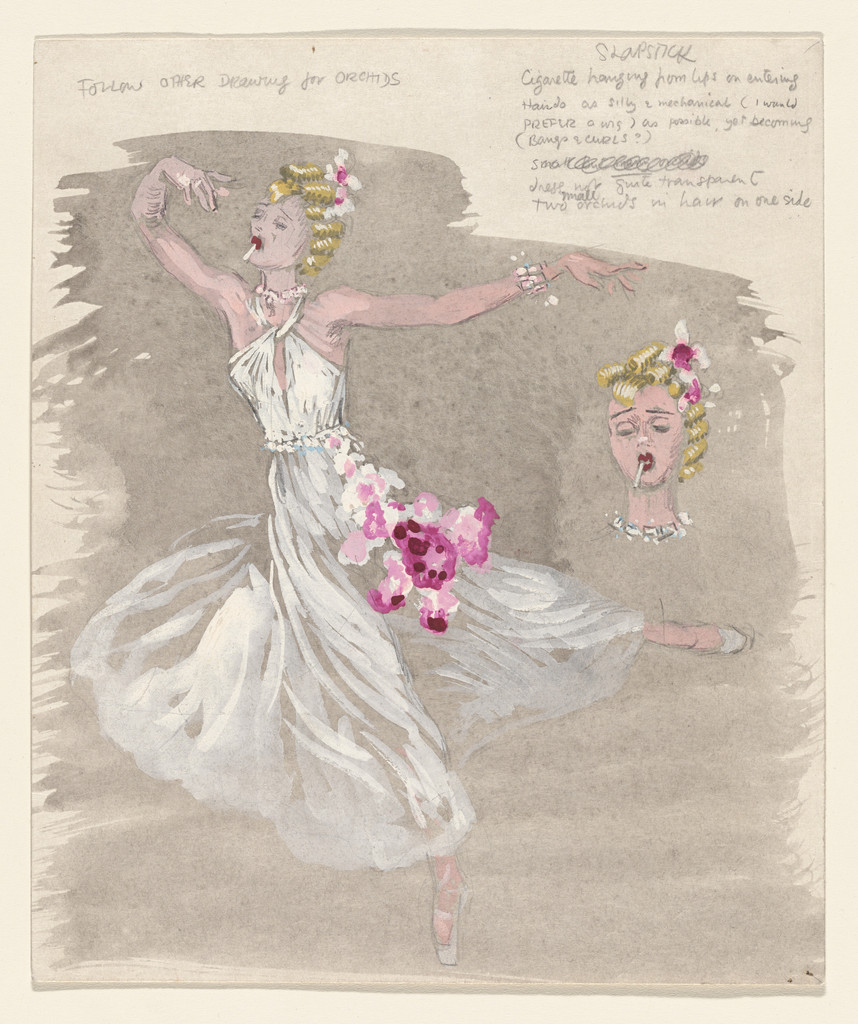 SLAPSTICK
FOLLOW OTHER DRAWING for ORCHIDS
Cigarette hanging from lips on entering
Hairdo as silly & mechanical ( I would
PREFER a wig ) as possible, yet becoming
( Bangs & CURLS ? )
small
dress not quite transparent
two small orchids in hair on one side